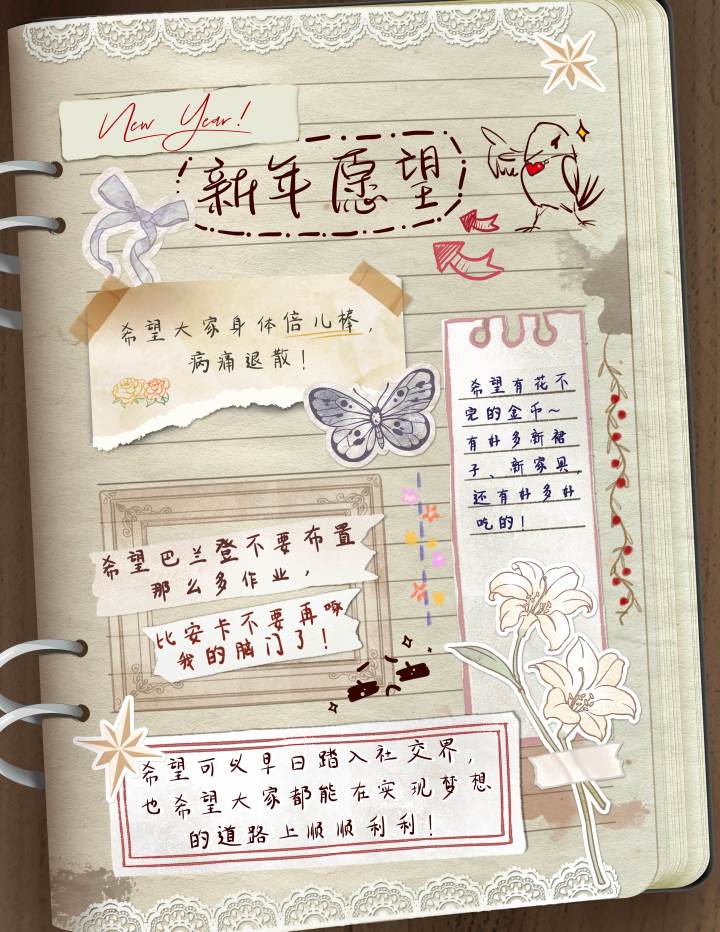 New Year!
新年愿望
希望大家身体倍儿棒，
病痛退散！
希望有花不
完的金币～
有好多新裙
子、新家具，
还有好多好
吃的！
希望巴兰登不要布置
那么多作业，
比安卡不要再啄
我的脑门了！
希望可以早日踏入社交界，
也希望大家都能在实现梦想
的道路上顺顺利利！